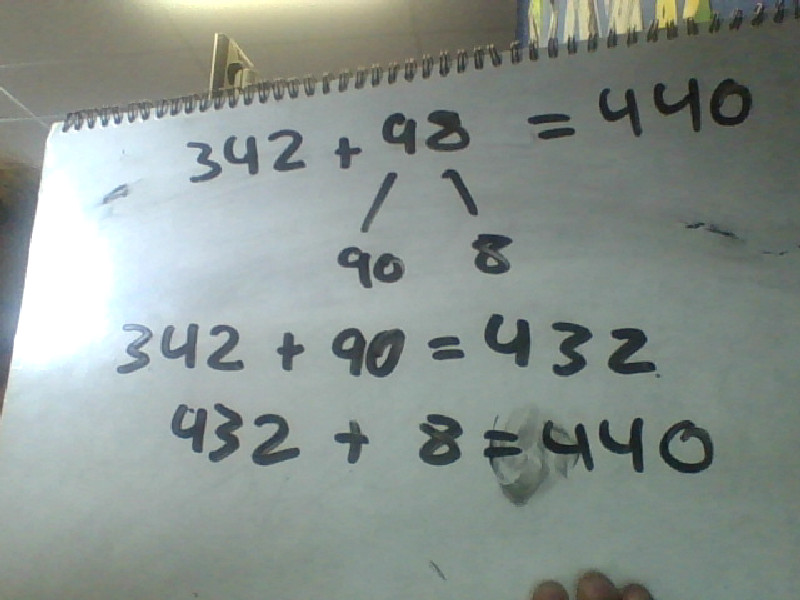 342 + 98 = 440
90 8
342 + 90 = 432
432 + 8 = 440